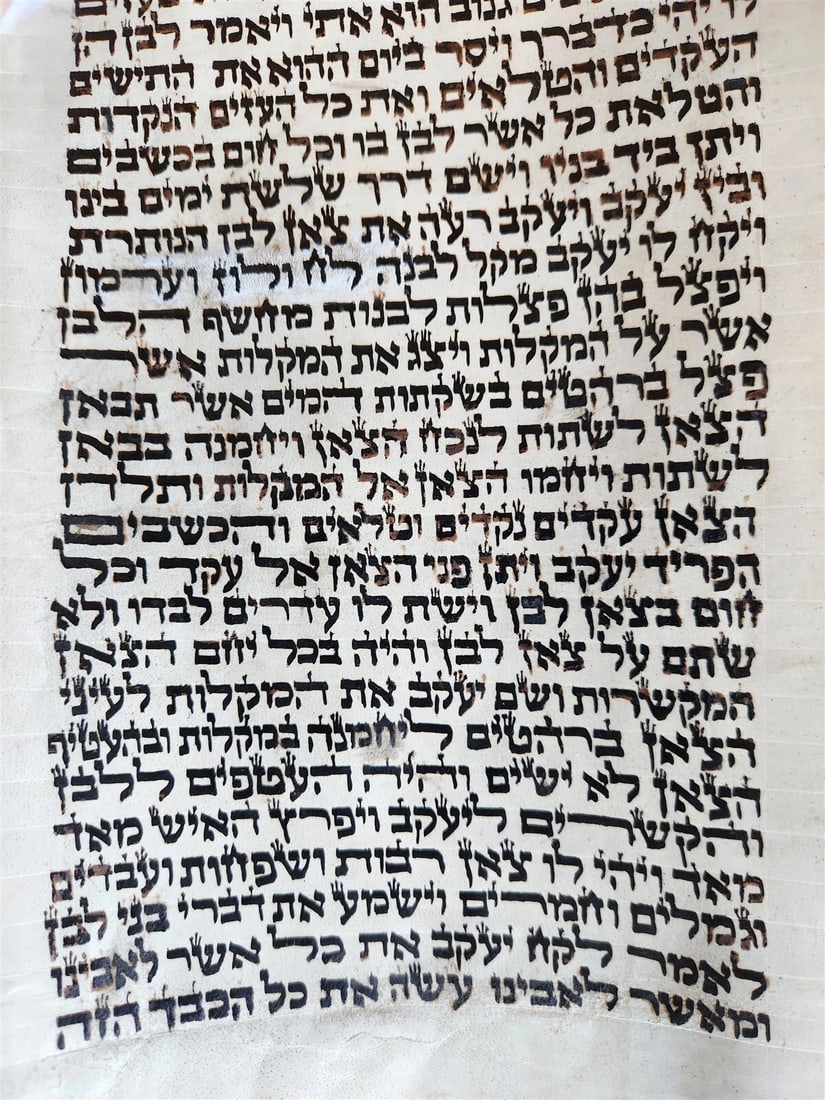 גנוב הוא אתי ויאמר לבן הן
לו יהי כדברך ויסר ביום ההוא את התישים
העקדים והטלאים ואת כל העזים הנקדות
והטלאת כל אשר לבן בו וכל חום בכשבים
ויתן ביד בניו וישם דרך שלשת ימים בינו
ובין יעקב ויעקב רעה את צאן לבן הנותרת
ויקח לו יעקב מקל לבנה לח ולוז וערמון
ויפצל בהן פצלות לבנות מחשף הלבן
אשר על המקלות ויצג את המקלות אשר
פצל ברהטים בשקתות המים אשר תבאן
הצאן לשתות לנכח הצאן ויחמנה בבאן
לשתות ויחמו הצאן אל המקלות ותלדן
הצאן עקדים נקדים וטלאים והכשבים
הפריד יעקב ויתן פני הצאן אל עקד וכל
חום בצאן לבן וישת לו עדרים לבדו ולא
שתם על צאן לבן והיה בכל יחם הצאן
המקשרות ושם יעקב את המקלות לעיני
הצאן ברהטים ליחמנה במקלות ובהעטיף
הצאן לא ישים והיה העטפים ללבן
והקשרים ליעקב ויפרץ האיש מאד
מאד ויהי לו צאן רבות ושפחות ועבדים
וגמלים וחמרים וישמע את דברי בני לבן
לאמר לקח יעקב את כל אשר לאבינו
ומאשר לאבינו עשה את כל הכבד הזה